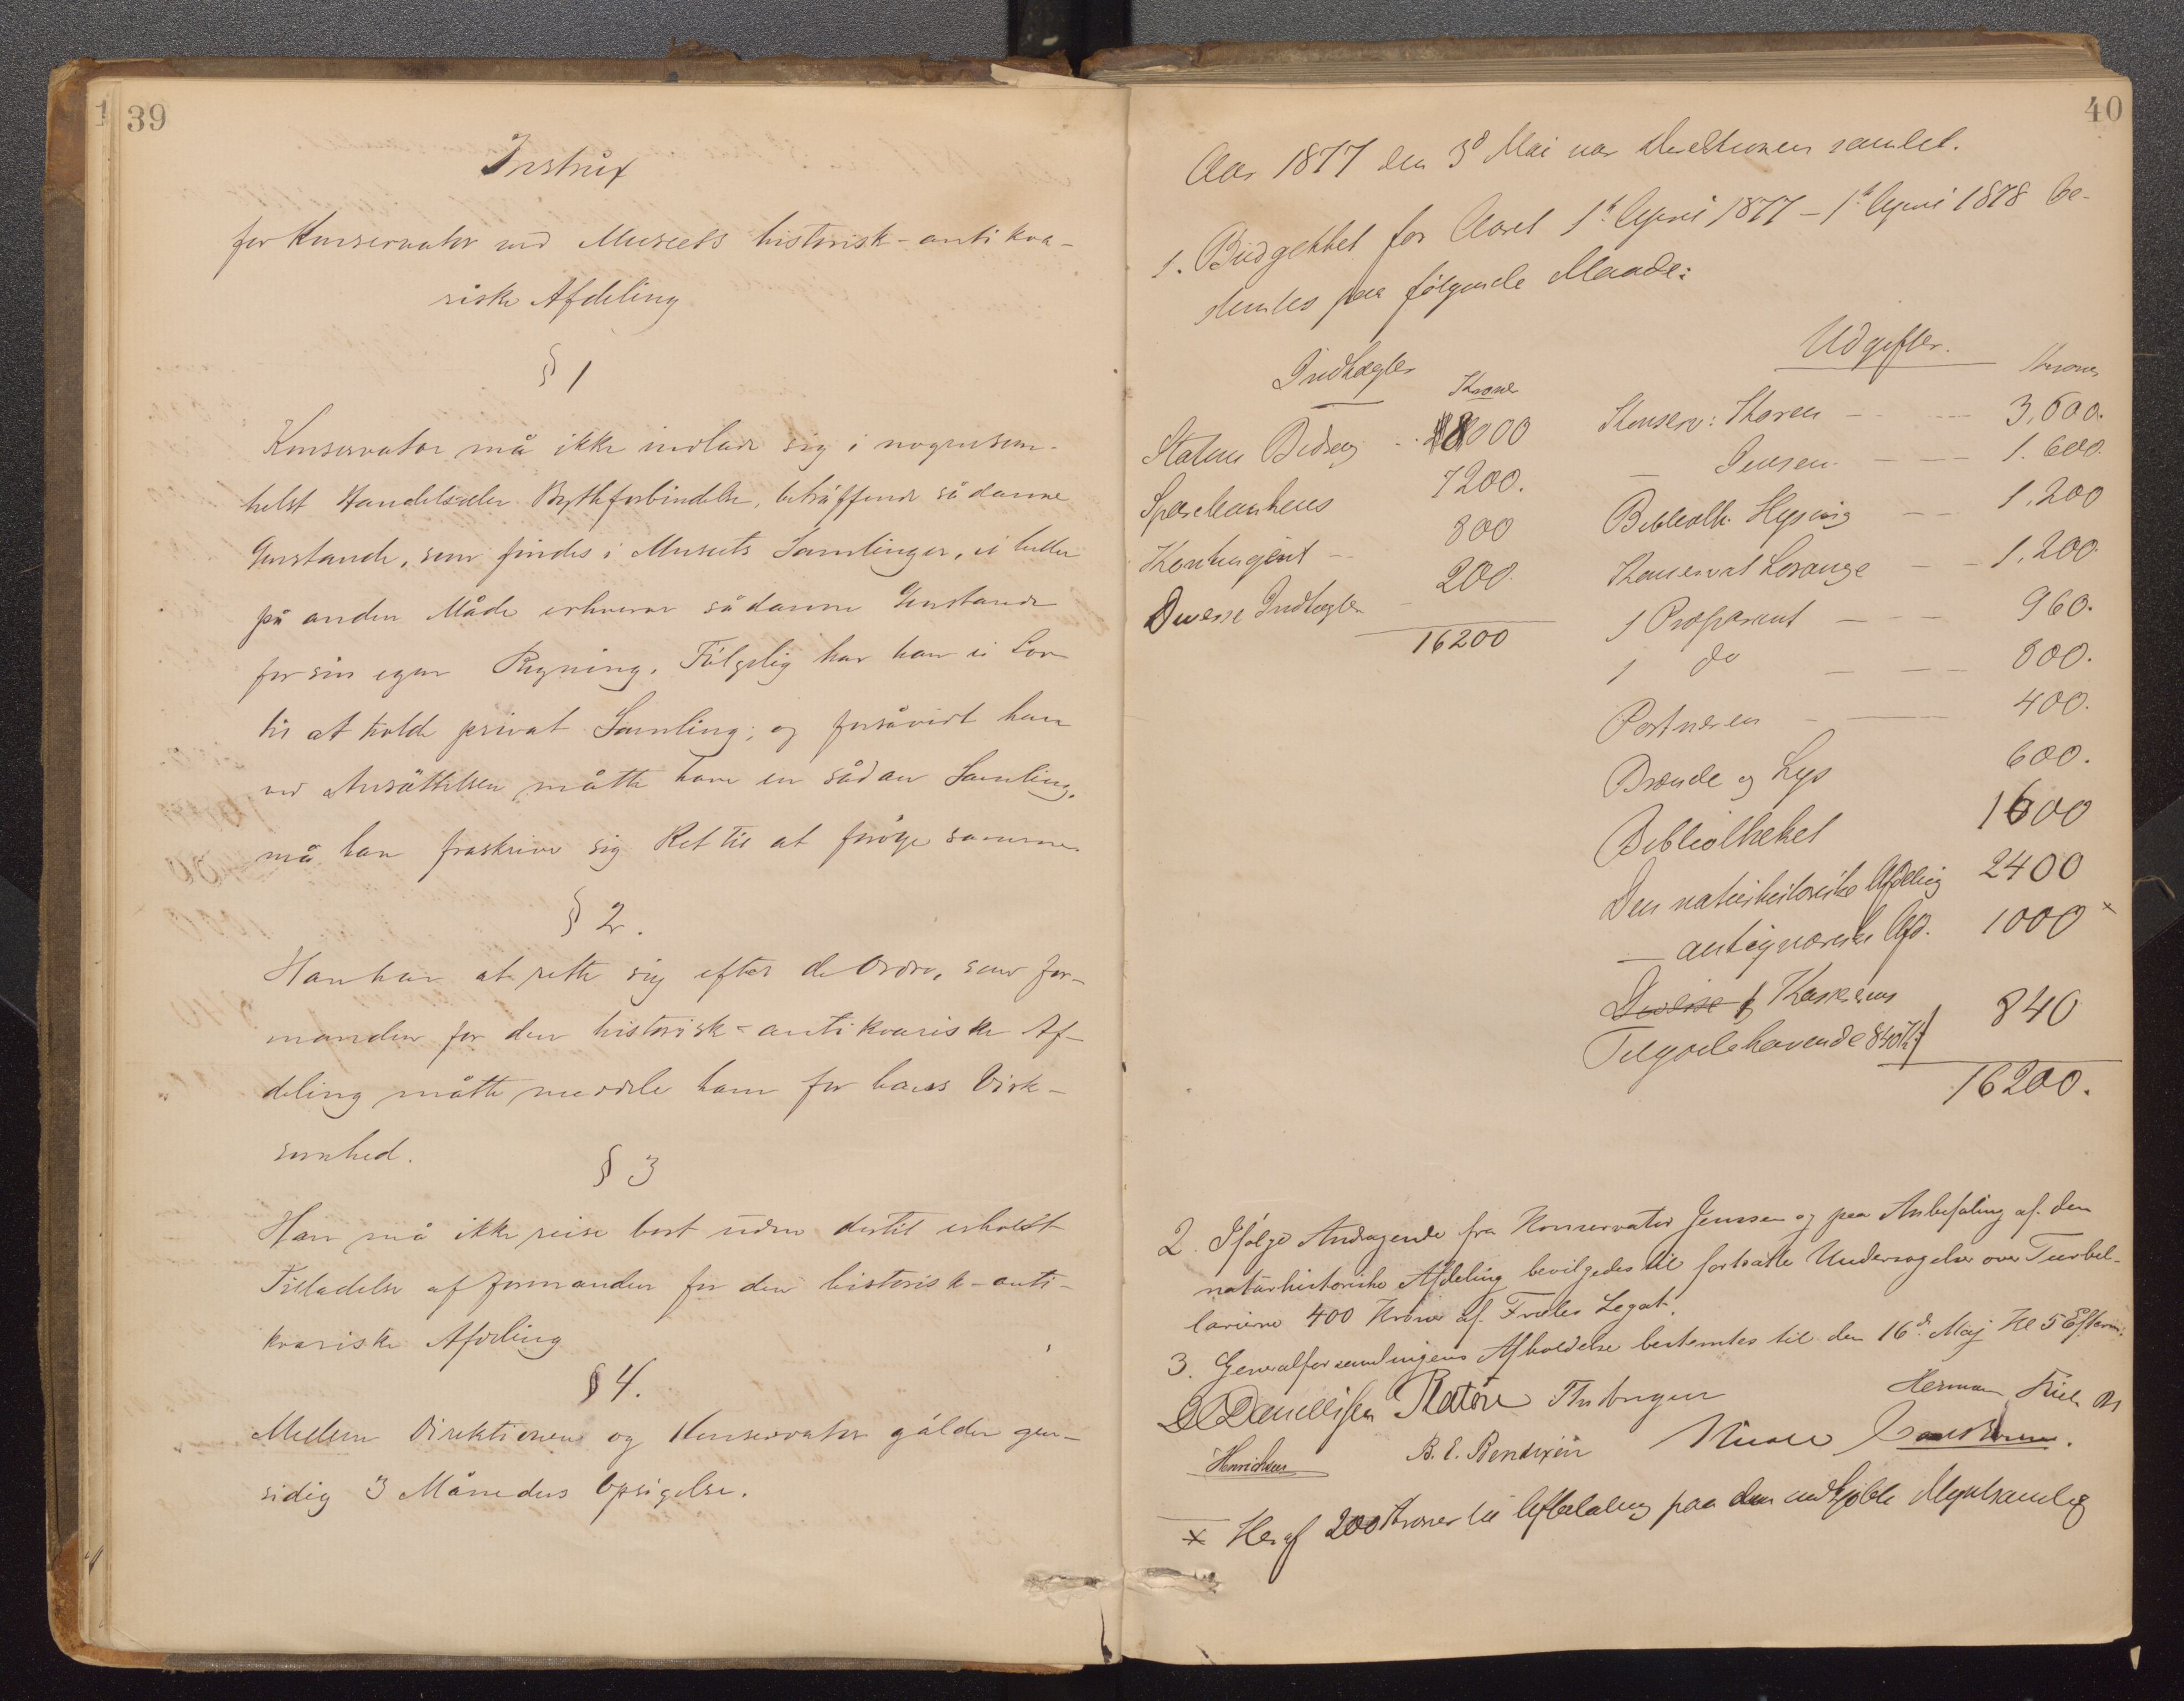 39
Instrux
for Konservator ved Museets historisk-antikva-
riske Afdeling
§ 1
Konservator må ikke indlade sig i nogensom-
helst Handels eller Bytteforbindelse, beträffende sådanne
Genstande, som findes i Museets Samlinger, ei heller
på anden Måde erhverve sådanne Genstande
for sin egen Regning. Følgelig har han ei Lov
til at holde privat Samling; og forsåvidt han
ved Ansättelsen måtte have en sådan Samling,
må han fraskrive sig Ret til at forøge samme.
§ 2.
Han har at rette sig efter de Ordre, som For-
manden for den historisk-antikvariske Af-
deling måtte meddele ham for hans Virk-
somhed.
§ 3
Han må ikke reise bort uden dertil erholdt
Tilladelse af Formanden for den historisk-anti-
kvariske Afdeling
§ 4.
Mellem Direktionen og Konservator gälder gen-
sidig 3 Måneders Opsigelse.
40
Aar 1877 den 3d Mai var Direktionen samlet.
1. Budgettet for Aaret 1ste April 1877 – 1ste April 1878 be-
stemtes paa følgende Maade:
Indtægter
Kroner
Statens Bidrag - - 8000
Sparebankens 7200.
Kontingent - - 800
Diverse Indtægter - 200.
16200
Udgifter.
Kroner
Konserv: Koren - - - 3,600.
— Jensen - - - 1.600.
Bibliothk. Hysing - - 1,200
Konservat Lorange - - 1,200.
1 Præparant - - - 960.
1 do - - - 800.
Portneren - - 400.
Brænde og Lys 600.
Bibliotheket 1600
Den naturhistoriske Afdeling 2400
— antiqvariske Afd. 1000 ×
Diverse & Kassererens
Tilgodehavende 840 Kr 840
16200.
2. Ifølge Andragende fra Konservator Jensen og paa Anbefaling af den
naturhistoriske Afdeling bevilgedes til fortsatte Undersøgelser over Turbel-
larierne 400 Kroner af Frieles Legat.
3. Generalforsamlingens Afholdelse bestemtes til den 16d. Maj Kl 5 Efterm:
D C Danielssen Herman Friele
Henrichsen B. E. Bendixen
× Heraf 200 Kroner til Afbetaling paa den indkjøbte Myntsamling